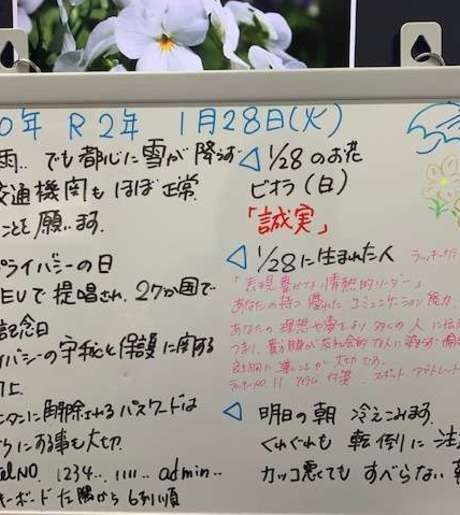 0年 R2年 1月28日(火)
雨‥でも都心に雪が降らず
交通機関もほぼ正常
ことを願います。
プライバシーの日
EUで提唱され、27か国で
記念日
イバシーの守秘と保護に関する
向上
ンタンに解除されるパスワードは
ようにする事も大切
telNO. 1234‥ 1111‥ admin‥
キーボード左隅から6列順
◁ 1/28のお花
ビオラ(白)
「誠実」
◁ 1/28に生まれた人
「表現豊かな情熱的リーダー」
あなたの持つ優れたコミュニケーション能力
あなたの理想や夢をより多くの人に伝
ラッキーNO.11
◁ 明日の朝 冷えこみます。
くれぐれも転倒に注
カッコ悪くてもすべらない